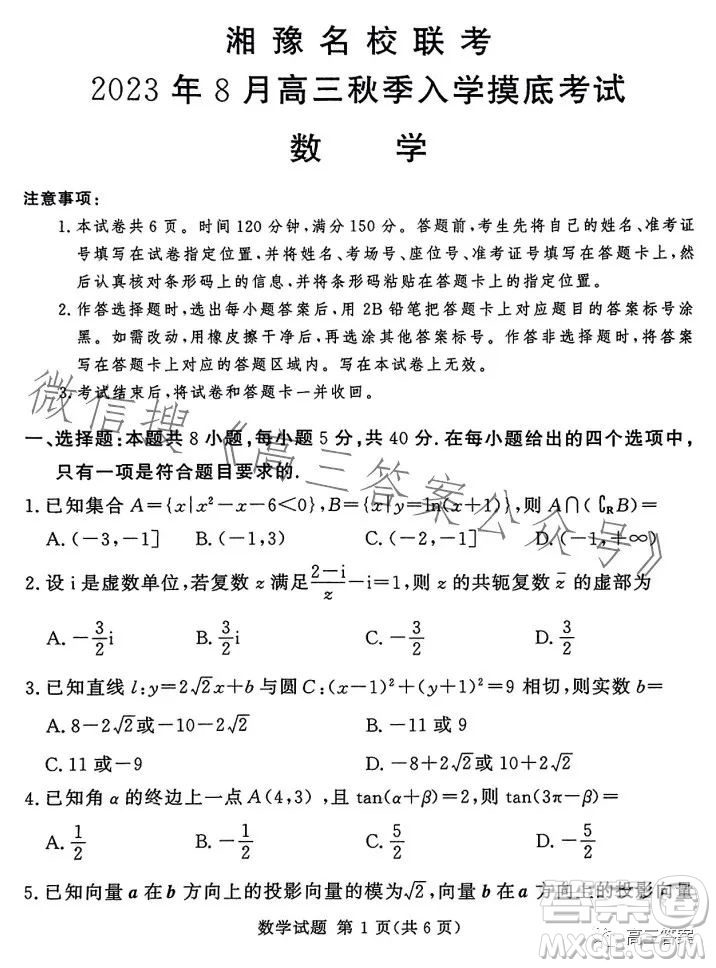 湘豫名校联考
2023年8月高三秋季入学摸底考试
数 学
注意事项:
1.本试卷共6页。时间120分钟,满分150分。答题前,考生先将自己的姓名、准考证
号填写在试卷指定位置,并将姓名、考场号、座位号、准考证号填写在答题卡上,然
后认真核对条形码上的信息,并将条形码粘贴在答题卡上的指定位置。
2.作答选择题时,选出每小题答案后,用2B铅笔把答题卡上对应题目的答案标号涂
黑。如需改动,用橡皮擦干净后,再选涂其他答案标号。作答非选择题时,将答案
写在答题卡上对应的答题区域内。写在本试卷上无效。
3.考试结束后,将试卷和答题卡一并收回。
微信搜《高三答案公众号》
一、选择题:本题共8小题,每小题5分,共40分.在每小题给出的四个选项中,
只有一项是符合题目要求的.
1.已知集合A={x|x²-x-6<0},B={x|y=ln(x+1)},则A∩(∁RB)=
A.(-3,-1] B.(-1,3) C.(-2,-1] D.(-1,+∞)
2.设i是虚数单位,若复数z满足(2-i)/z-i=1,则z的共轭复数z̄的虚部为
A.-3/2i B.3/2i C.-3/2 D.3/2
3.已知直线l:y=2√2x+b与圆C:(x-1)²+(y+1)²=9相切,则实数b=
A.8-2√2或-10-2√2 B.-11或9
C.11或-9 D.-6+2√2或8+2√2
4.已知角α的终边上一点A(4,3),且tan(α+β)=2,则tan(3π-β)=
A.1/2 B.-1/2 C.5/2 D.-5/2
5.已知向量a在b方向上的投影向量的模为√2,向量b在a方向上的投影向量
数学试题 第1页(共6页)
答案圈
MXQE.COM
高三答案